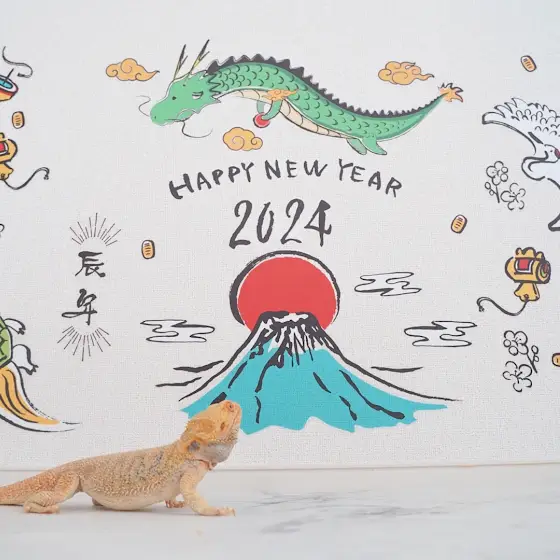 HAPPY NEW YEAR
2024
辰年